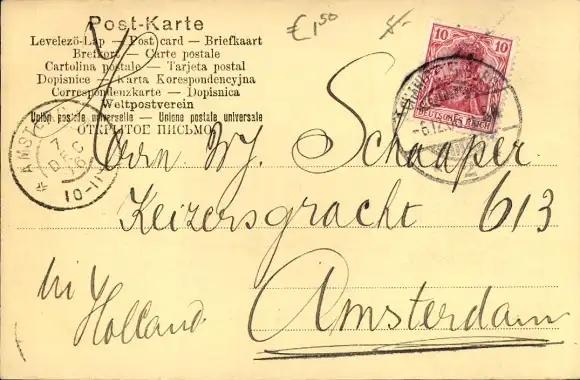 Post-Karte
Levelező-Lap — Post card — Briefkaart
Brefkort — Carte postale
Cartolina postale — Tarjeta postal
Dopisnice — Karta Korespondencyjna
Correspondenzkarte — Dopisnica
Weltpostverein
Union postale universelle — Unione postale universale
ОТКРЫТОЕ ПИСЬМО
€ 1,50
10 10
DEUTSCHES REICH
AMSTERDAM
7 DEC
10-11
Schaaper
Keizersgracht 613
Amsterdam
Holland